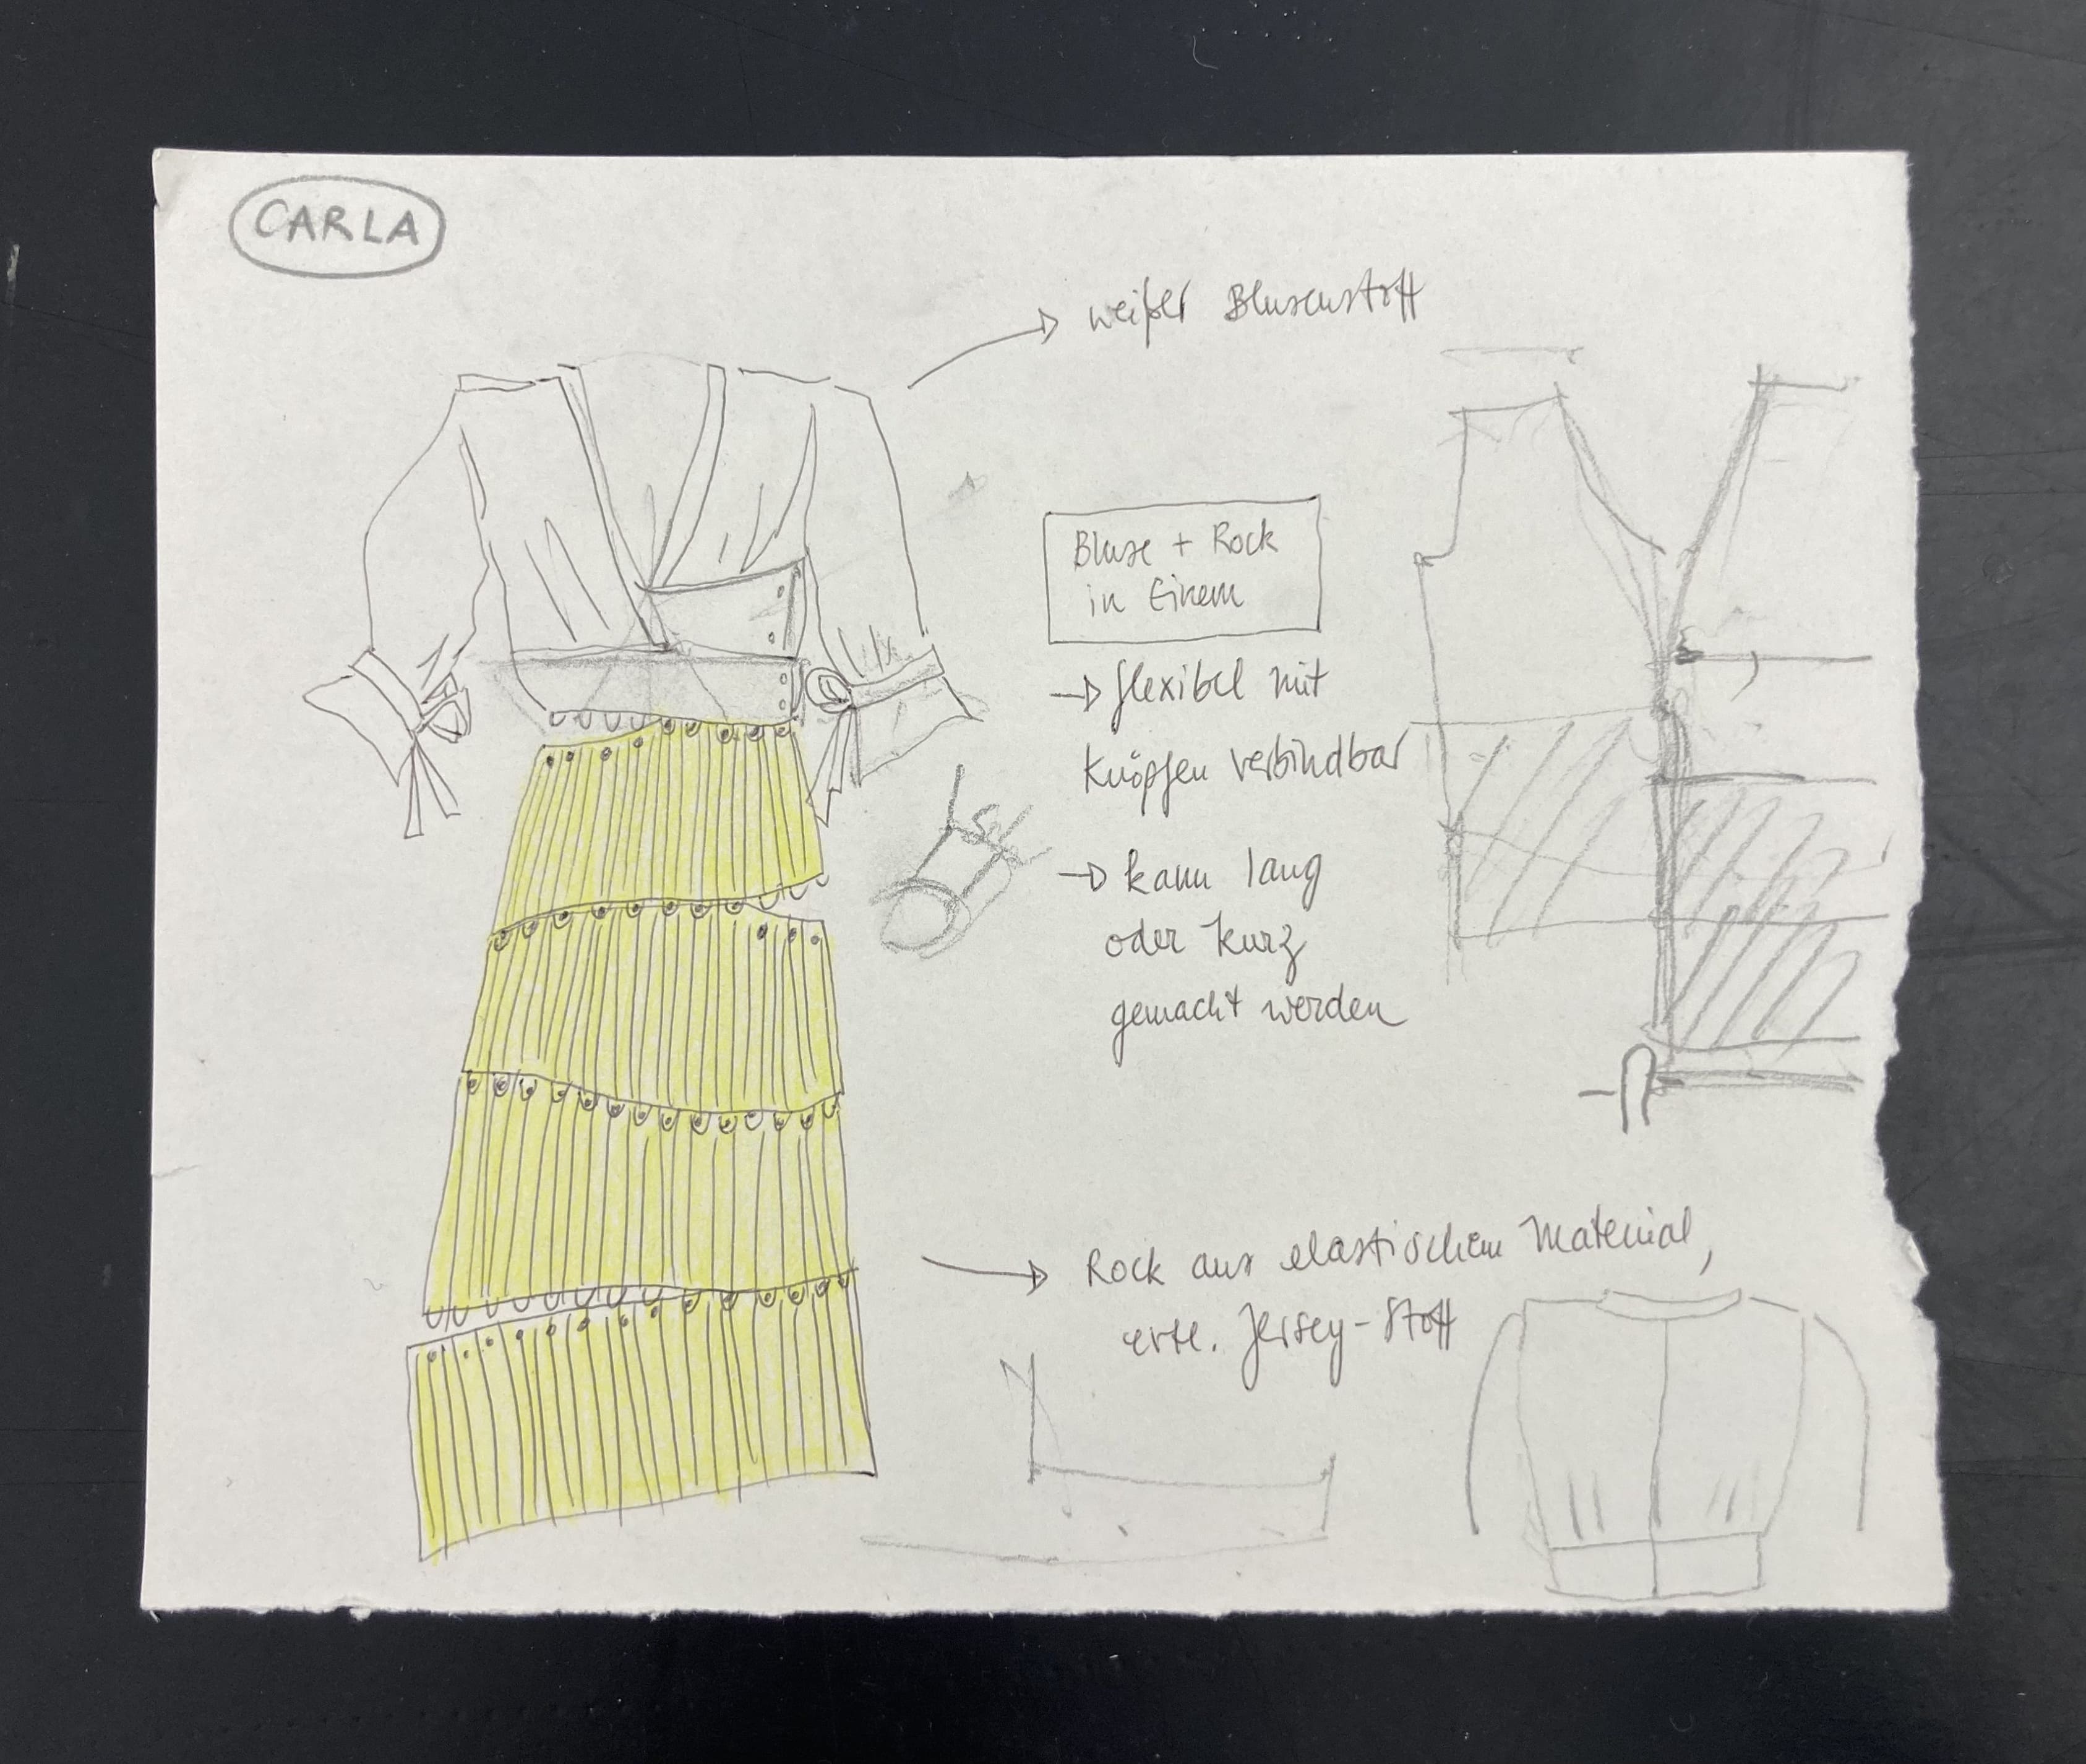 CARLA
→ weißer Blusenstoff
Bluse + Rock
in Einem
→ flexibel mit
Knöpfen verbindbar
→ kann lang
oder kurz
gemacht werden
→ Rock aus elastischem Material,
evtl. Jersey-Stoff